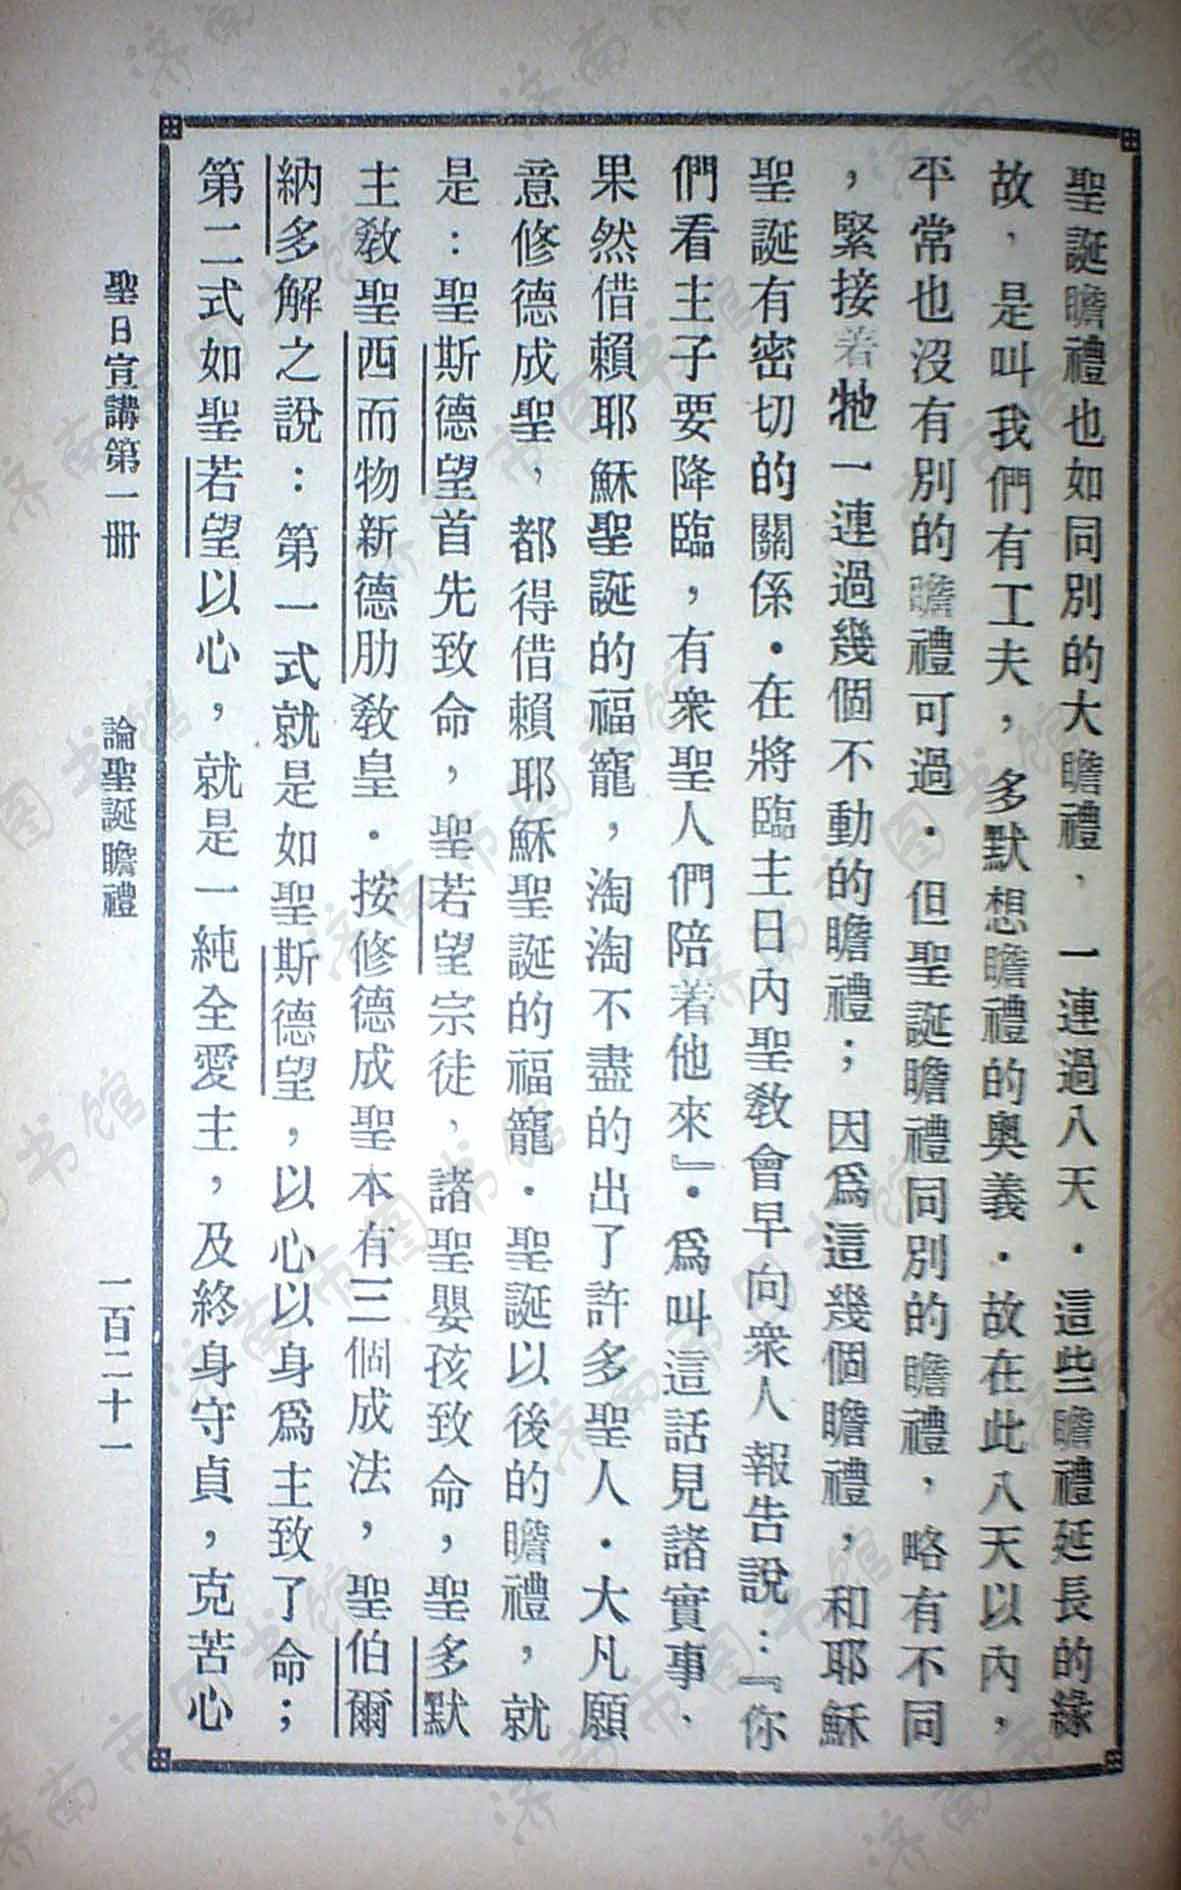 聖誕瞻禮也如同別的大瞻禮，一連過八天．這些瞻禮延長的緣
故，是叫我們有工夫，多默想瞻禮的奧義．故在此八天以內，
平常也沒有別的瞻禮可過．但聖誕瞻禮同別的瞻禮，略有不同
，緊接着牠一連過幾個不動的瞻禮；因爲這幾個瞻禮，和耶穌
聖誕有密切的關係．在將臨主日內聖敎會早向衆人報告說：『你
們看主子要降臨，有衆聖人們陪着他來』．爲叫這話見諸實事，
果然借賴耶穌聖誕的福寵，淘淘不盡的出了許多聖人．大凡願
意修德成聖，都得借賴耶穌聖誕的福寵．聖誕以後的瞻禮，就
是：聖斯德望首先致命，聖若望宗徒，諸聖嬰孩致命，聖多默
主敎聖西而物斯德肋敎皇．按修德成聖本有三個成法，聖伯爾
納多解之說：第一式就是如聖斯德望，以心以身爲主致了命；
第二式如聖若望以心，就是一純全愛主，及終身守貞，克苦心
聖日宣講第一册
論聖誕瞻禮
一百二十一
济南市图书馆